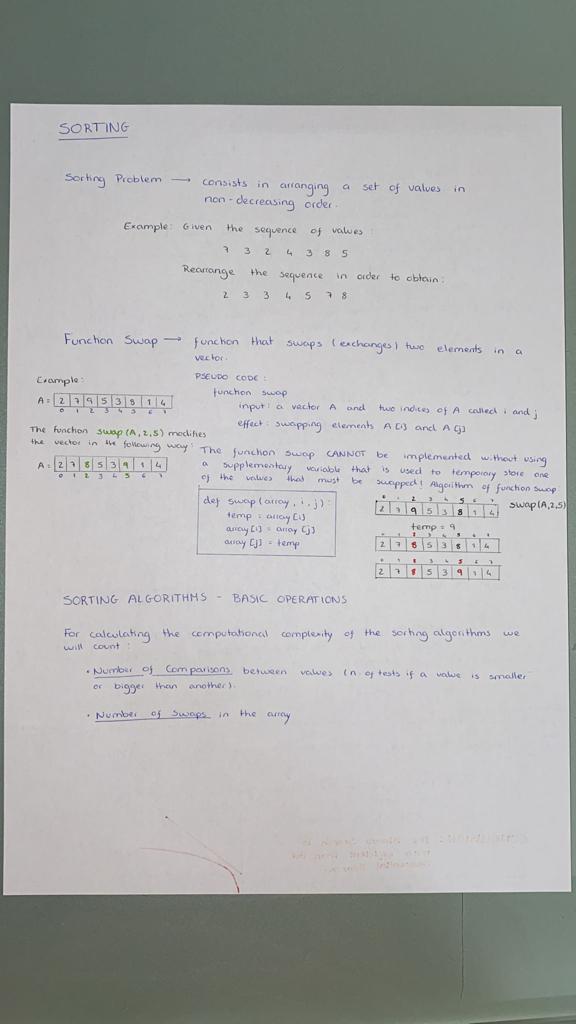 SORTING
Sorting Problem → consists in arranging a set of values in
non-decreasing order.
Example: Given the sequence of values:
7 3 2 4 3 8 5
Rearrange the sequence in order to obtain:
2 3 3 4 5 7 8
Function Swap → function that swaps (exchanges) two elements in a
vector.
Example:
A = 2 7 9 5 3 8 1 4
0 1 2 3 4 5 6 7
The function swap(A,2,5) modifies
the vector in the following way:
A = 2 7 8 5 3 9 1 4
0 1 2 3 4 5 6 7
PSEUDO CODE:
function swap
input: a vector A and two indices of A called i and j
effect: swapping elements A[i] and A[j]
The function swap CANNOT be implemented without using
a supplementary variable that is used to temporary store one
of the values that must be swapped! Algorithm of function swap
def swap(array, i, j):
temp = array[i]
array[i] = array[j]
array[j] = temp
0 1 2 3 4 5 6 7
2 7 9 5 3 8 1 4 swap(A,2,5)
temp = 9
0 1 2 3 4 5 6 7
2 7 8 5 3 8 1 4
0 1 2 3 4 5 6 7
2 7 8 5 3 9 1 4
SORTING ALGORITHMS - BASIC OPERATIONS
For calculating the computational complexity of the sorting algorithms we
will count:
• Number of Comparisons between values (n. of tests if a value is smaller
or bigger than another).
• Number of Swaps in the array